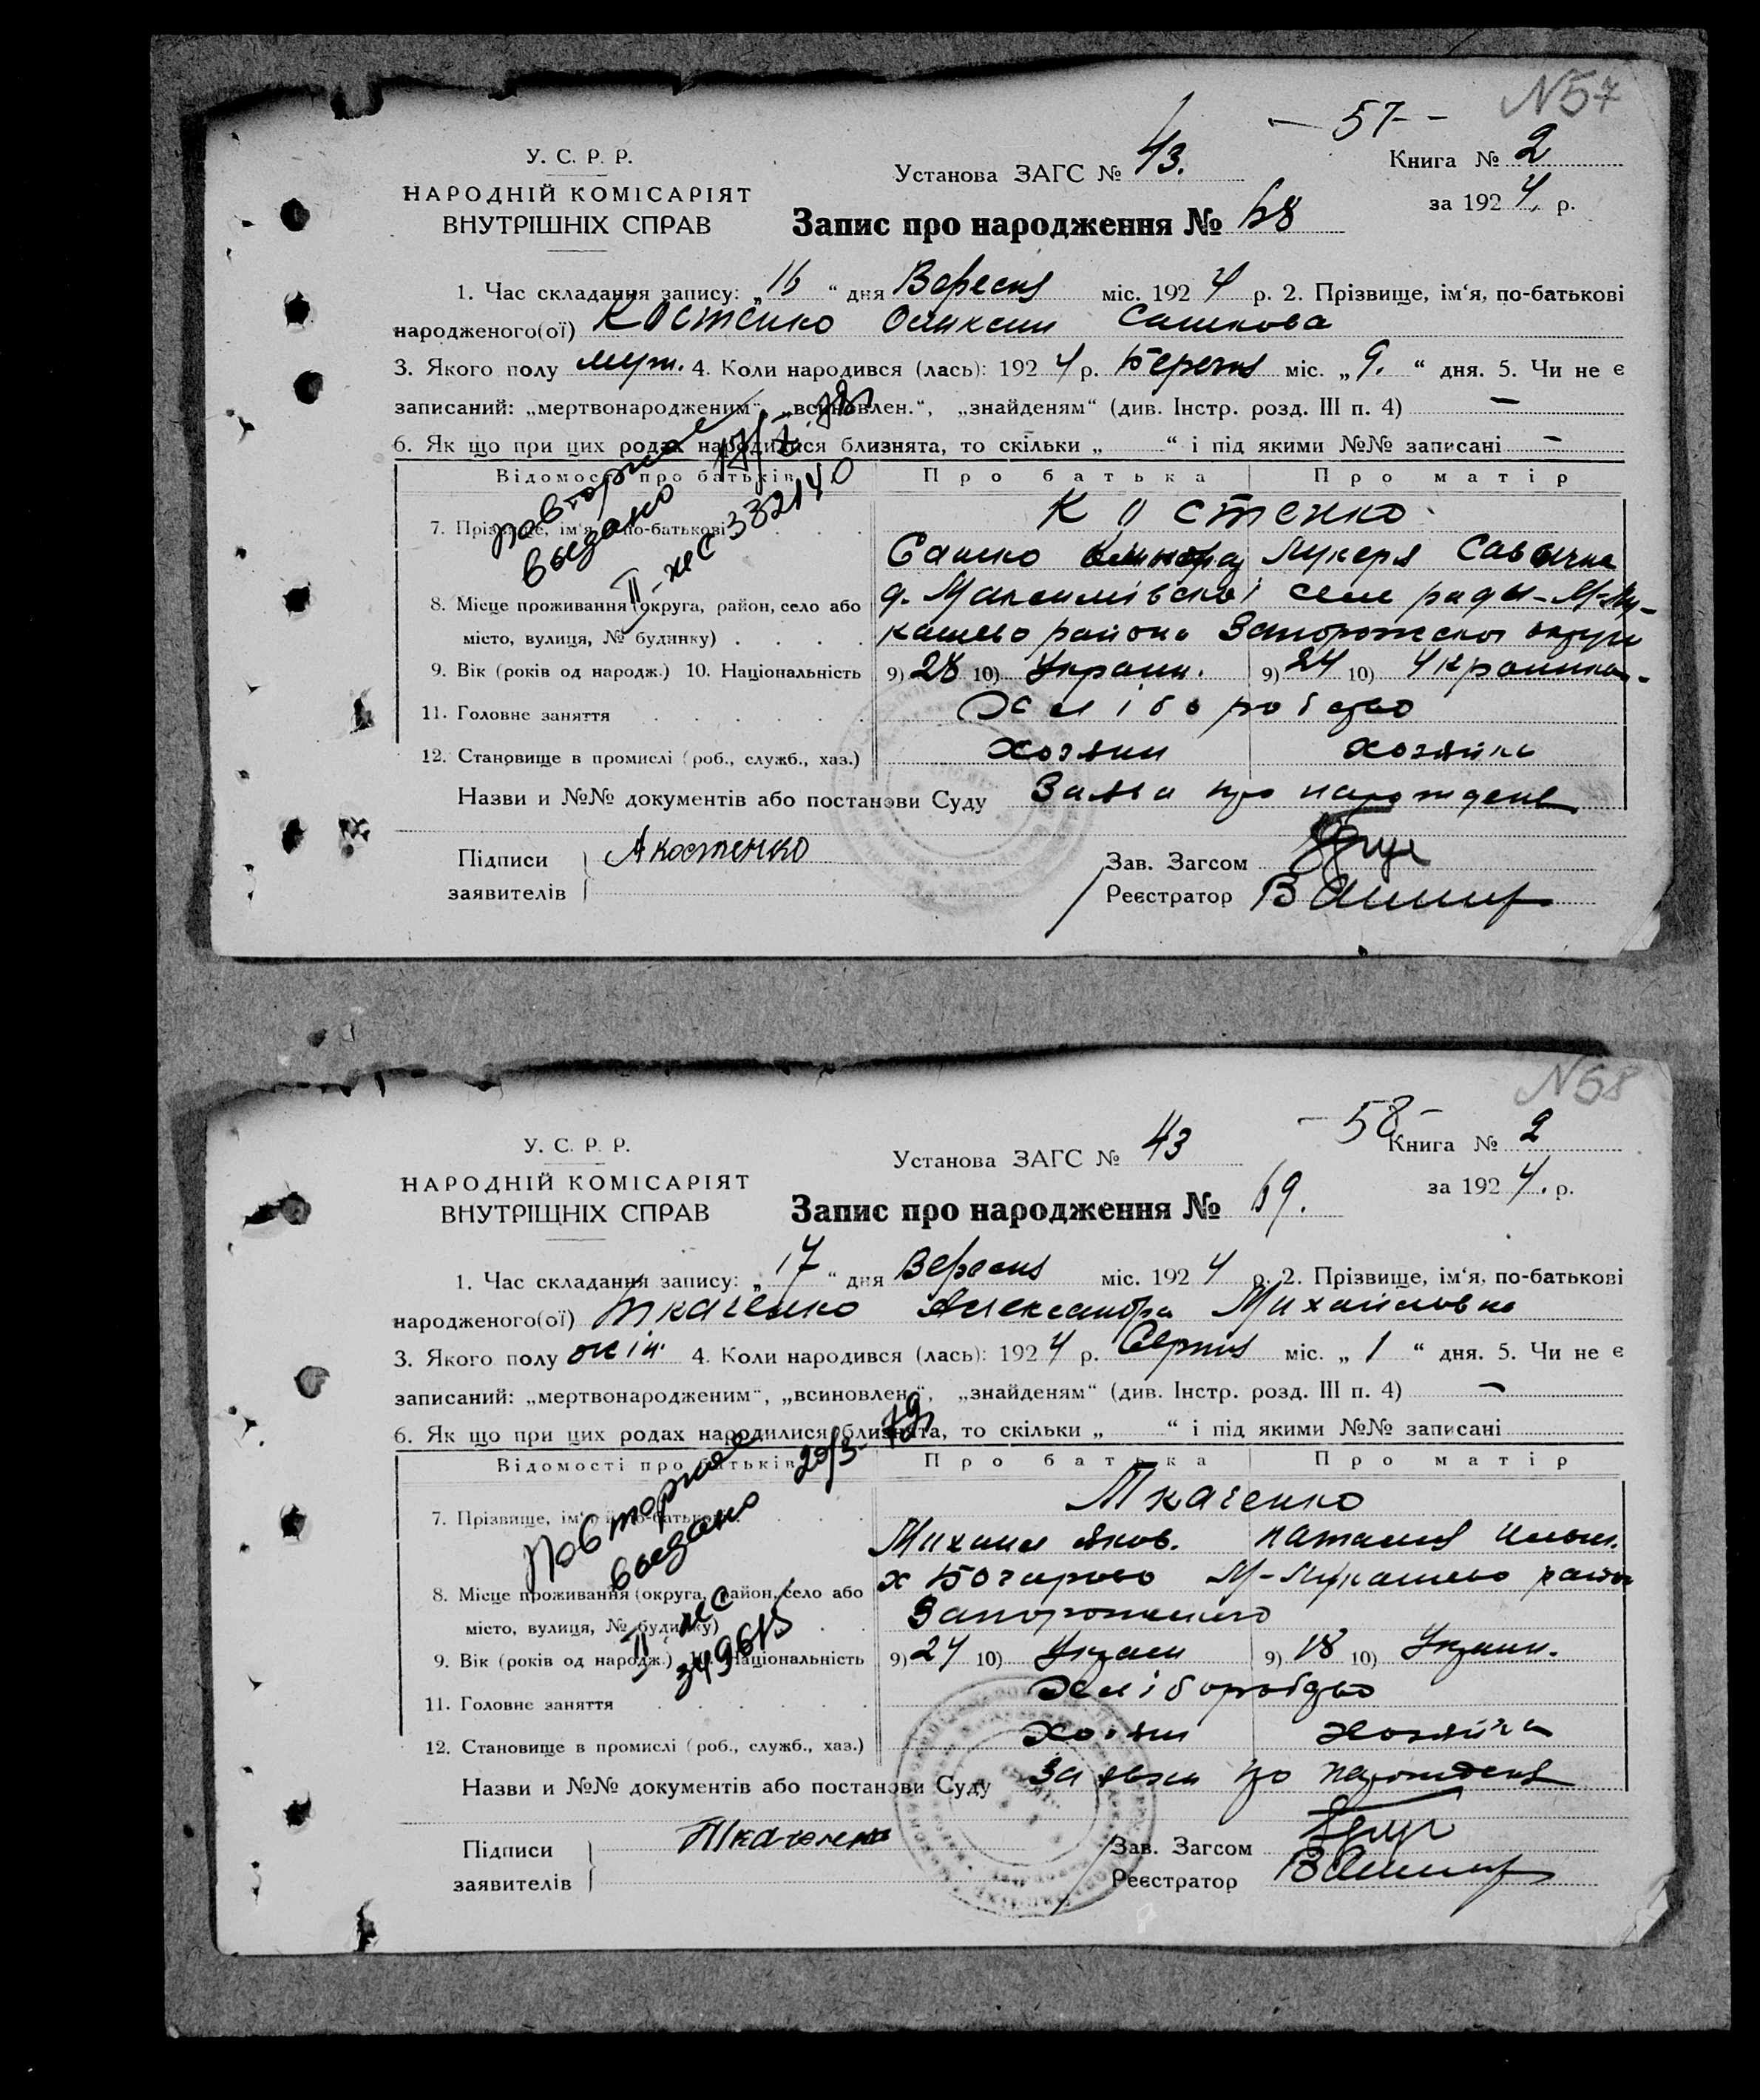 N57
- 57 -
У. С. Р. Р.
НАРОДНІЙ КОМІСАРІЯТ
ВНУТРІШНІХ СПРАВ
Установа ЗАГС № 43.
Книга № 2
за 1924 р.
Запис про народження № 68
1. Час складання запису: „16“ дня Вересня міс. 1924 р. 2. Прізвище, ім‘я, по-батькові
народженого(ої) Костенко Сашкова
3. Якого полу муж. 4. Коли народився (лась): 1924 р. міс. „9.“ дня. 5. Чи не є
записаний: „мертвонародженим“, „всиновлен.“, „знайденям“ (див. Інстр. розд. III п. 4) —
6. Як що при цих родах народилися близнята, то скільки „ “ і під якими №№ записані —
Відомості про батьків
Про батька
Про матір
повторное
выдано
II-жс 332140
7. Прізвище, ім‘я й по-батькові
Костенко
Сашко
Лукеря Саввична
8. Місце проживання (округа, район, село або
місто, вулиця, № будинку)
д. Максимівської сел ради - М-Лу-
кашево района Запорожской округи
9. Вік (років од народж.) 10. Національність
9) 28 10) Украин.
9) 24 10) Украинка
11. Головне заняття
Хліборобство
12. Становище в промислі (роб., служб., хаз.)
хозяин
хозяйка
Назви и №№ документів або постанови Суду Заява про народження
Підписи
заявителів
А Костенко
Зав. Загсом
Реєстратор
N58
- 58 -
У. С. Р. Р.
НАРОДНІЙ КОМІСАРІЯТ
ВНУТРІЩНІХ СПРАВ
Установа ЗАГС № 43
Книга № 2
за 1924. р.
Запис про народження № 69.
1. Час складання запису: „17“ дня Вересня міс. 1924 р. 2. Прізвище, ім‘я, по-батькові
народженого(ої) Ткаченко Александра Михайловна
3. Якого полу жін. 4. Коли народився (лась): 1924 р. Серпня міс. „1“ дня. 5. Чи не є
записаний: „мертвонародженим“, „всиновлен.“, „знайденям“ (див. Інстр. розд. III п. 4) —
6. Як що при цих родах народилися близнята, то скільки „ “ і під якими №№ записані
Відомості про батьків
Про батька
Про матір
Повторное
выдано
20/3-79
II жс
349615
7. Прізвище, ім‘я й по-батькові
Ткаченко
Михаил Яков.
Наталия Ильин.
8. Місце проживання (округа, район, село або
місто, вулиця, № будинку)
х Бочарово М-Лукашево район
Запорожского
9. Вік (років од народж.) 10. Національність
9) 24 10) Украин
9) 18 10) Украин.
11. Головне заняття
Хліборобство
12. Становище в промислі (роб., служб., хаз.)
хозяин
хозяйка
Назви и №№ документів або постанови Суду Заявка про народження
Підписи
заявителів
Ткаченко
Зав. Загсом
Реєстратор